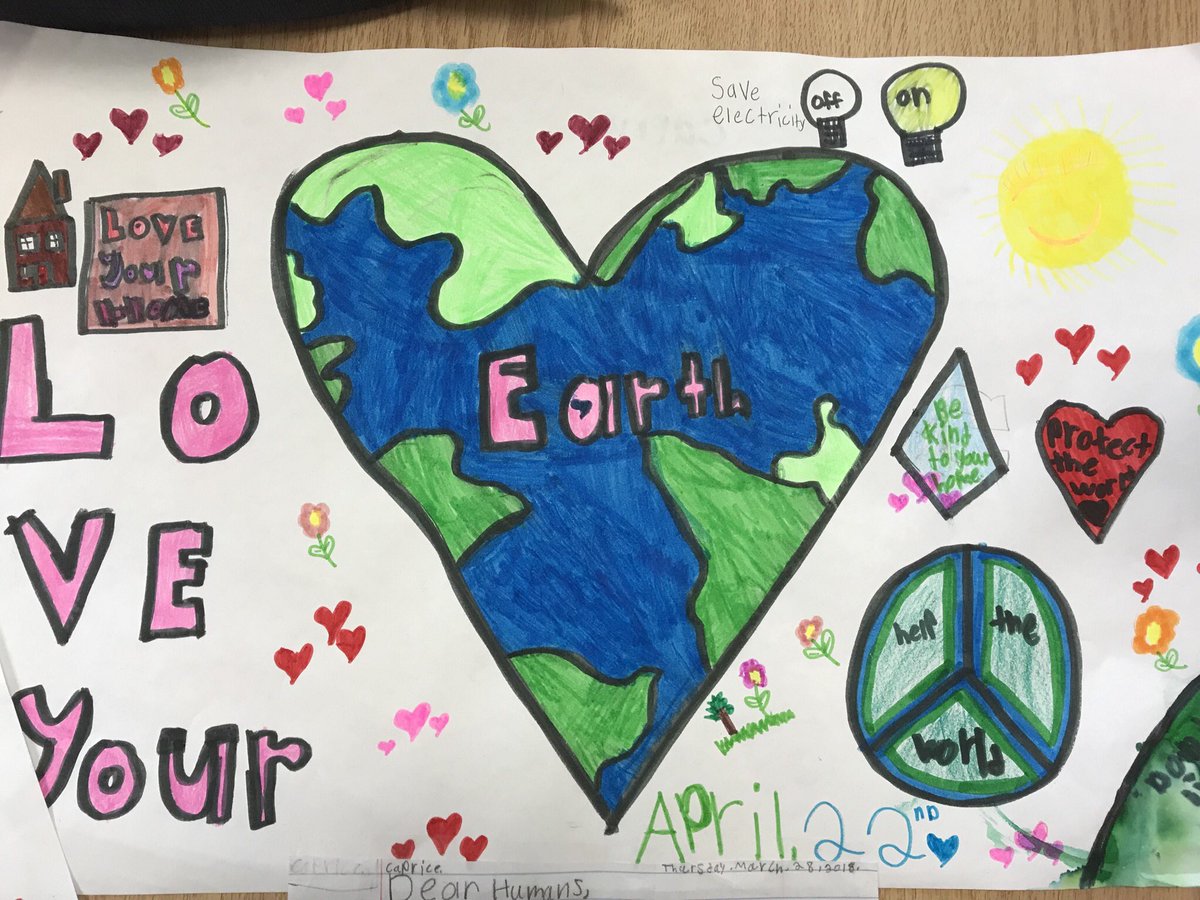 Save
electricity
off
on
Love
Your
Home
LO
VE
Your
Earth
Be
kind
to your
home
Protect
the
world
help the
world
April. 22ND
caprice. Thursday. March. 28, 2018.
Dear Humans,